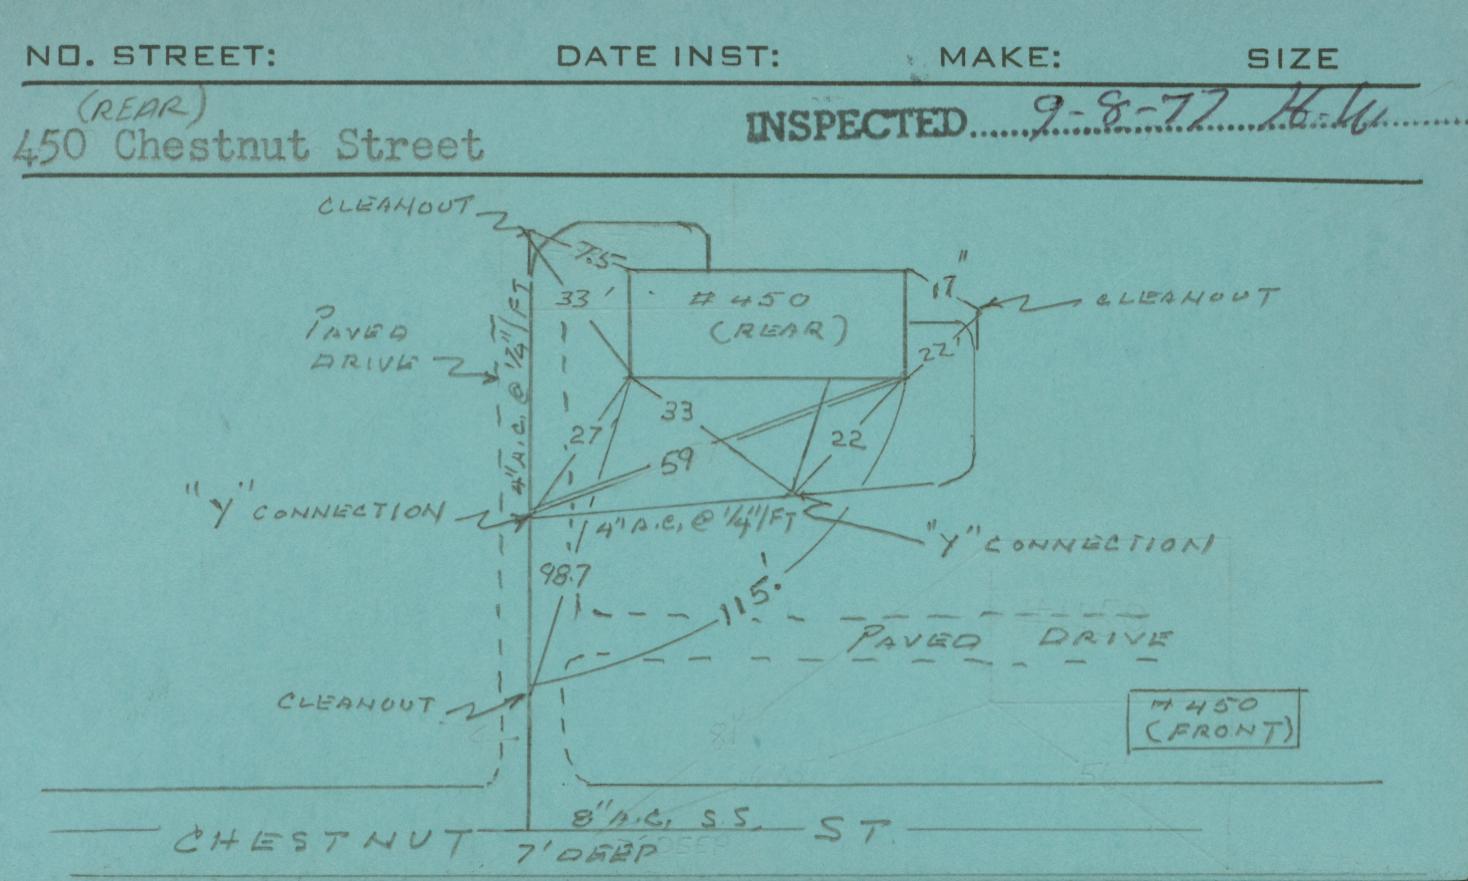 NO. STREET: DATE INST: MAKE: SIZE
(REAR)
450 Chestnut Street
INSPECTED 9-8-77
CLEANOUT
7.5
33'
17"
# 450
(REAR)
CLEANOUT
PAVED
DRIVE
4" A.C. @ 1/4"/FT
22'
33
27'
22
59
"Y" CONNECTION
4" A.C. @ 1/4"/FT
"Y" CONNECTION
98.7
115.'
PAVED DRIVE
CLEANOUT
# 450
(FRONT)
8" A.C. S.S.
CHESTNUT ST.
7' DEEP